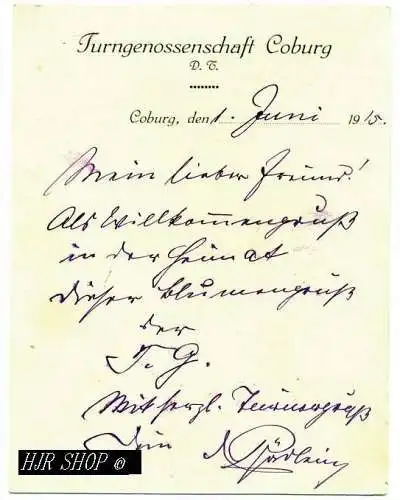 Turngenossenschaft Coburg
D. T.
Coburg, den 1. Juni 1915.
Mein lieber Freund!
Als Willkommengruß
in der Heimat
dieser Blumengruß
der
T. G.
Mit herzl. Turnergruß
Dein
HJR SHOP ©